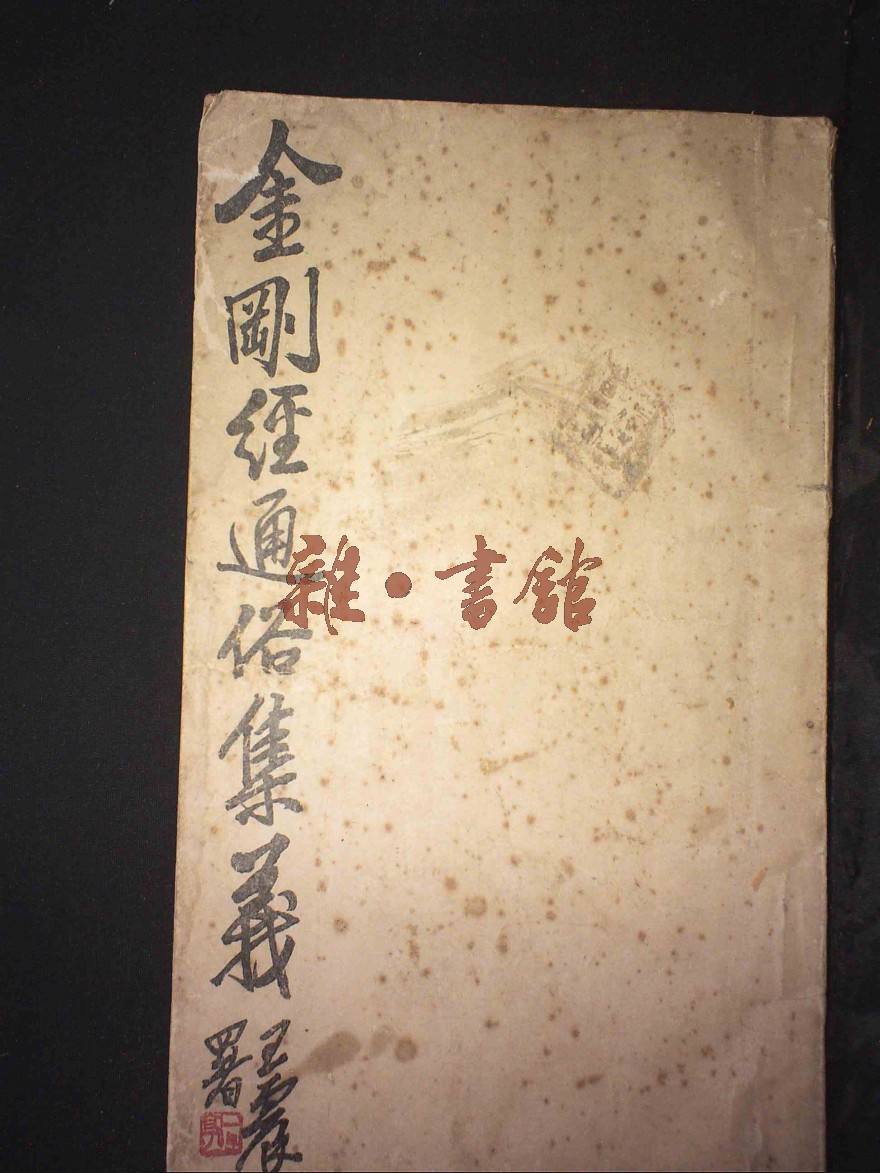 金剛經通俗集義
王震
署
雜·書館